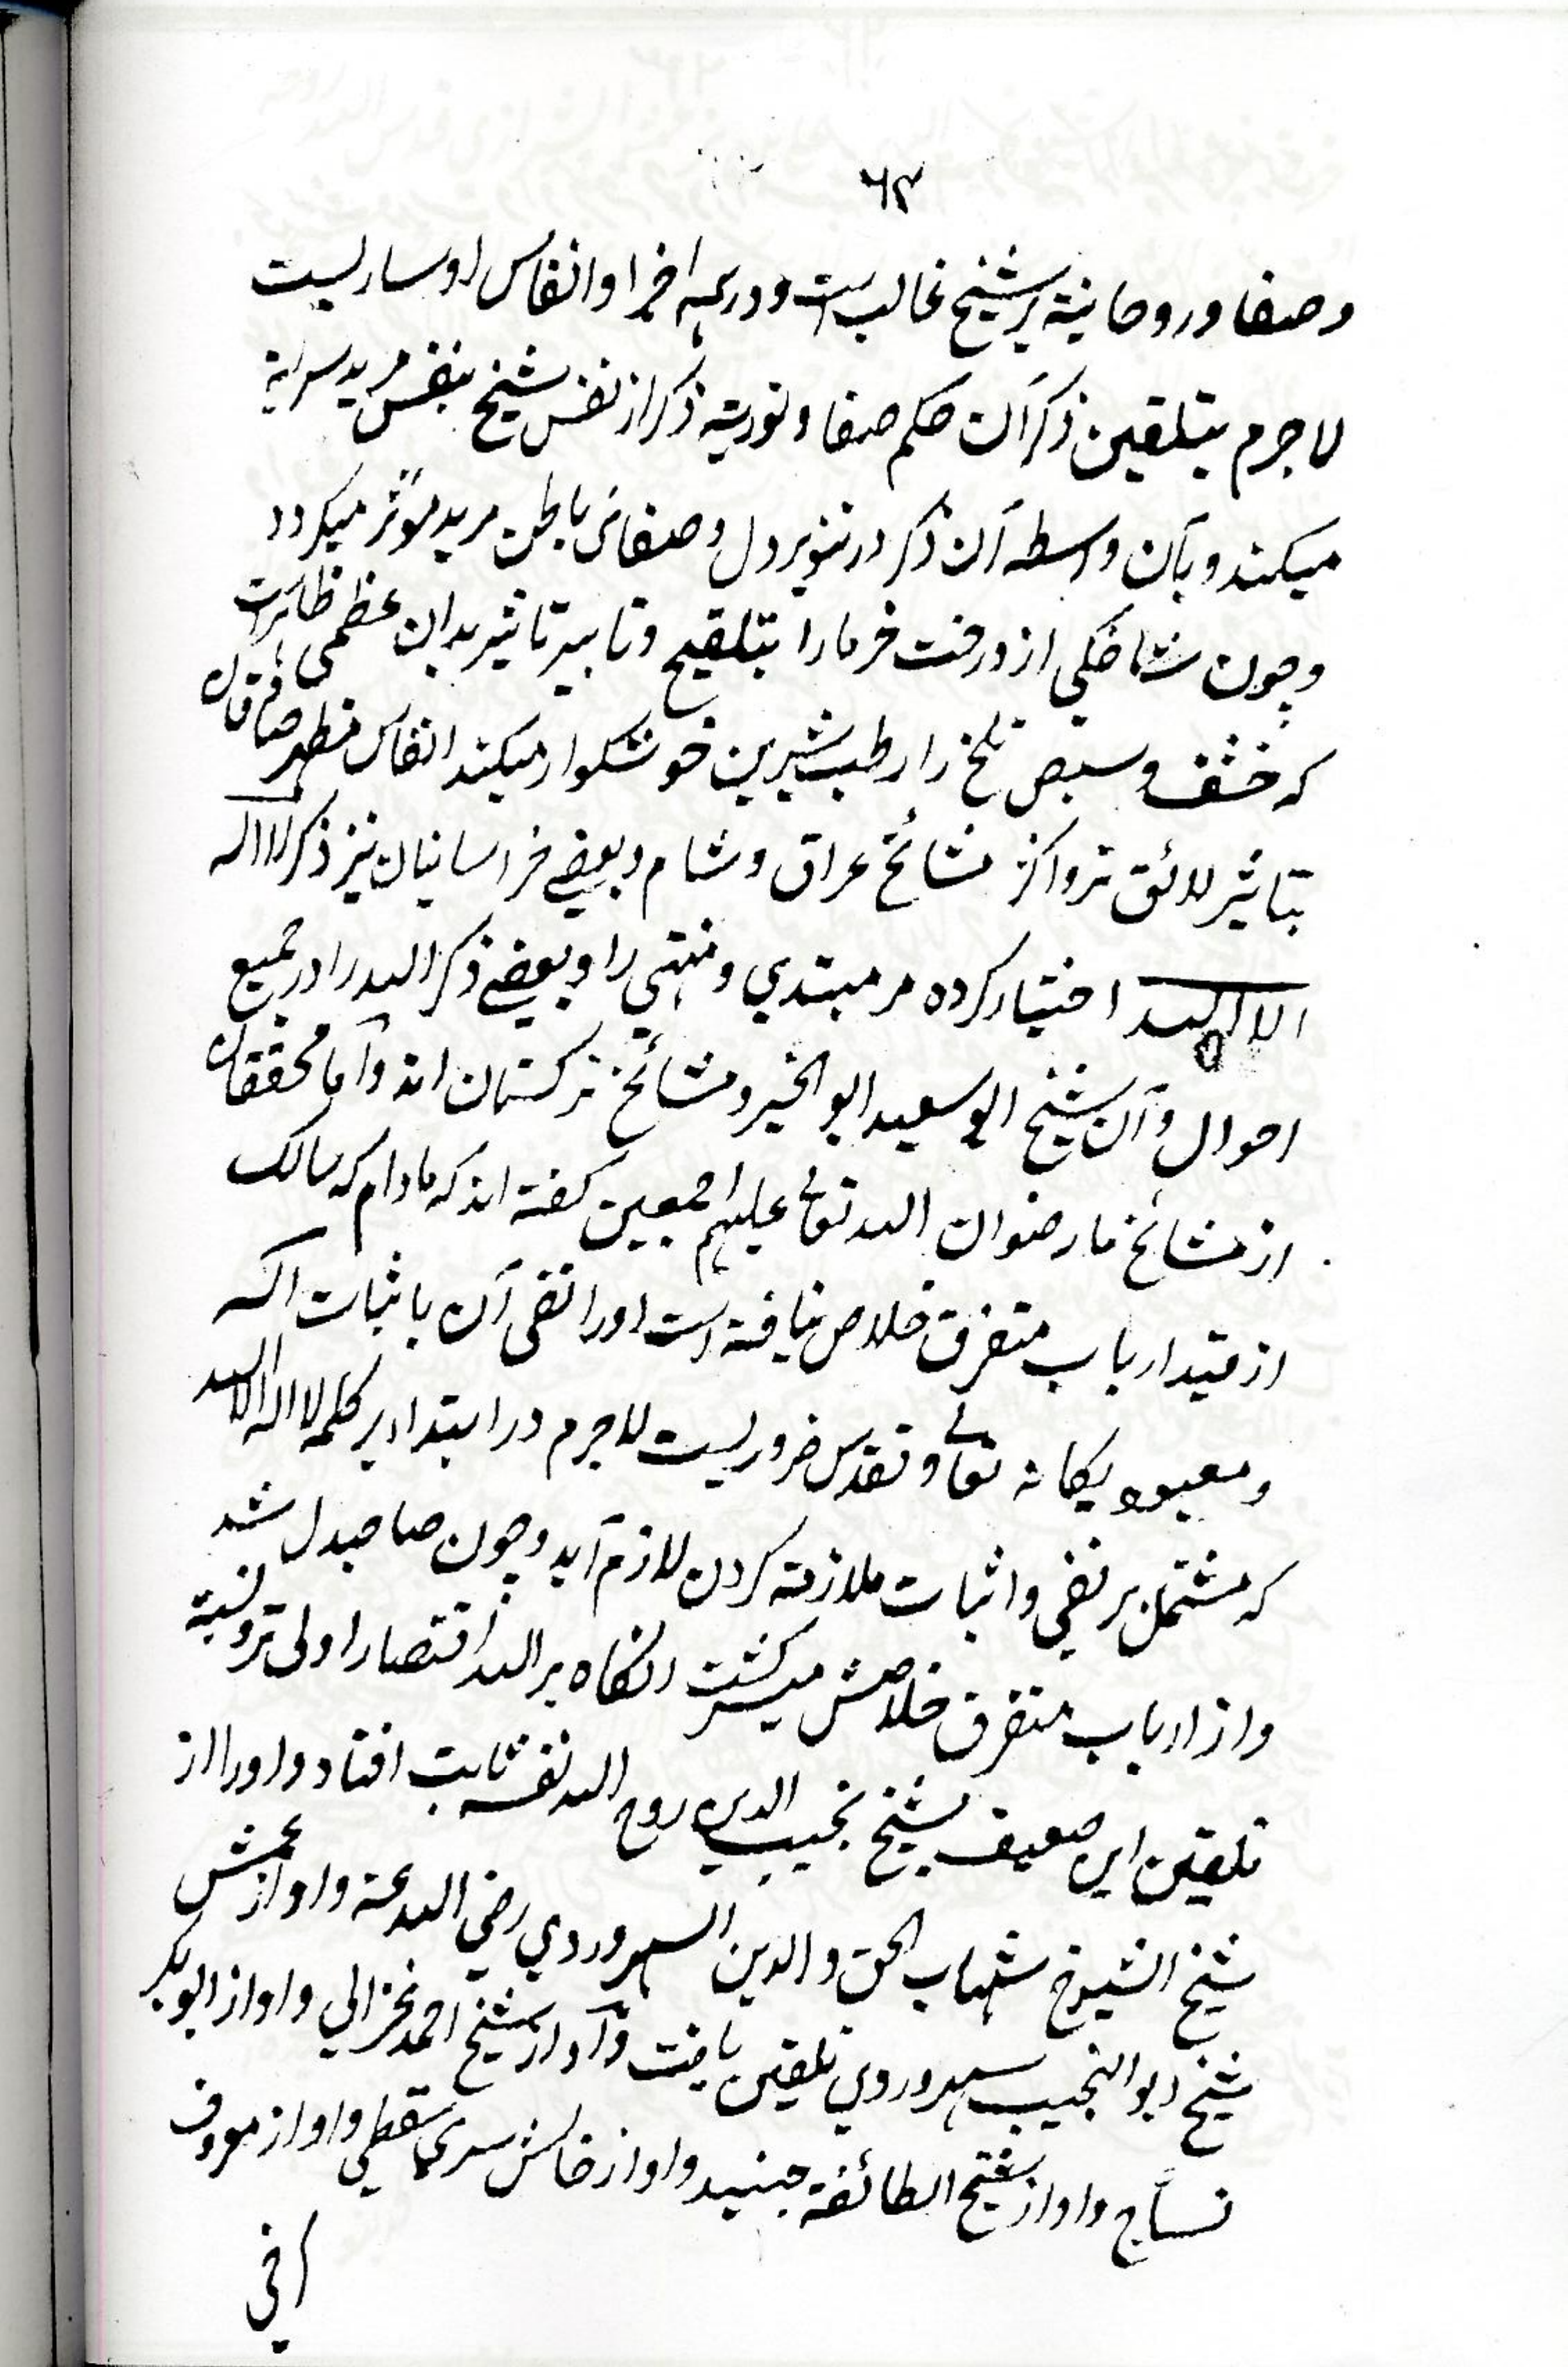 ٦٣
و صفا و روحانیة بر شیخ غالب است و در همه اجزا و انفاس او ساریست
لاجرم بتلقین ذکر آن حکم صفا و نوریته ذکر از نفس شیخ بنفس مرید سرایة
میکند و بآن واسطه آن ذکر در تنویر دل و صفای باطن مرید موثر میکردد
و چون شاخکی از درخت خرما را بتلقیح و تابیر تاثیر بدان عظمی ظاهرست
که خشف و سیص تلخ را رطب شیرین خوشکوار میکند انفاس مطهر صادقان
بتاثیر لائق تر و اکثر مشائخ عراق و شام و بعضی خراسانیان نیز ذکر لا اله
الا الله اختیار کرده مر مبتدی و منتهی را و بعضی ذکر الله را در جمیع
احوال و آن شیخ ابو سعید ابو الخیر و مشائخ ترکستان اند و اما محققان
از مشائخ ما رضوان الله تعالی علیهم اجمعین کفته اند که مادام که سالک
از قید ارباب متفرق خلاص نیافته است او را نفی آن باثبات اله
و معبود یکانه تعالی و تقدس ضروریست لاجرم در ابتدا بر کلمه لا اله الا الله
که مشتمل بر نفی و اثبات ملازمة کردن لازم آید و چون صاحبدل شد
و از ارباب متفرق خلاصش میسر کشت انکاه بر الله اقتصار اولی تر و نسبة
تلقین این ضعیف بشیخ نجیب الدین روح الله نفسه ثابت افتاد و او را از
شیخ الشیوخ شهاب الحق و الدین السهروردی رضی الله عنه و او از عمش
شیخ ابو النجیب سهروردی تلقین یافت و او از شیخ احمد غزالی و او از ابوبکر
نساج و او از شیخ الطائفة جنید و او از خالش سری سقطی و او از معروف
کرخی